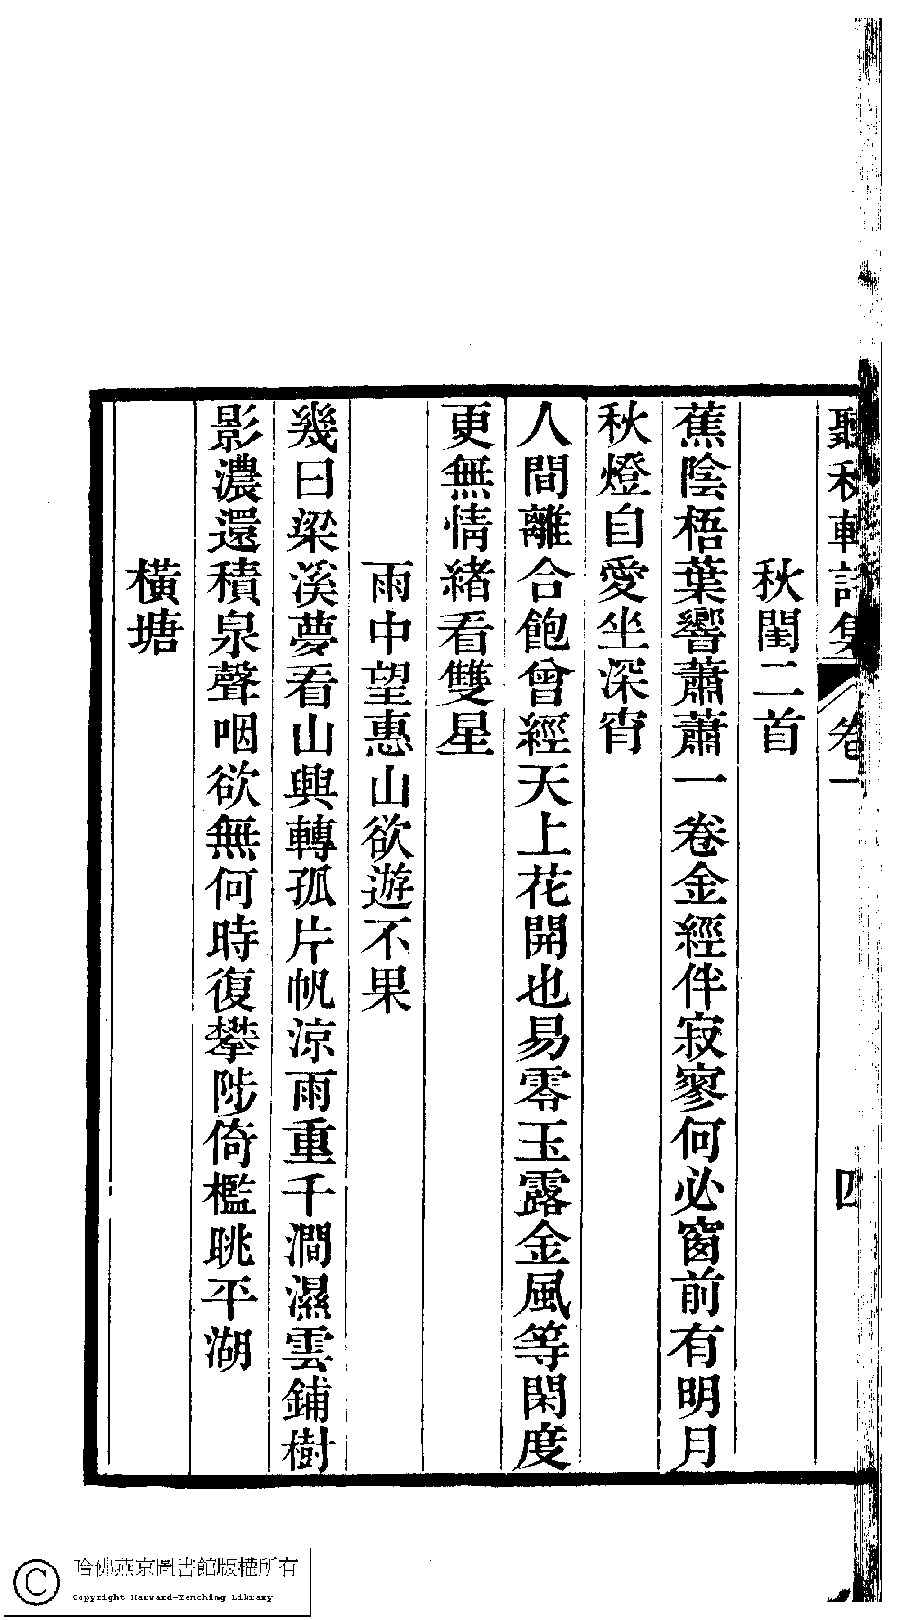 聽秋軒詩集 卷一 四
秋閨二首
蕉陰梧葉響蕭蕭一卷金經伴寂寥何必窗前有明月
秋燈自愛坐深宵
人間離合飽曾經天上花開也易零玉露金風等閑度
更無情緒看雙星
雨中望惠山欲遊不果
幾曰梁溪夢看山興轉孤片帆涼雨重千澗濕雲鋪樹
影濃還積泉聲咽欲無何時復攀陟倚檻眺平湖
橫塘
哈佛燕京圖書館版權所有
Copyright Harvard-Yenching Library